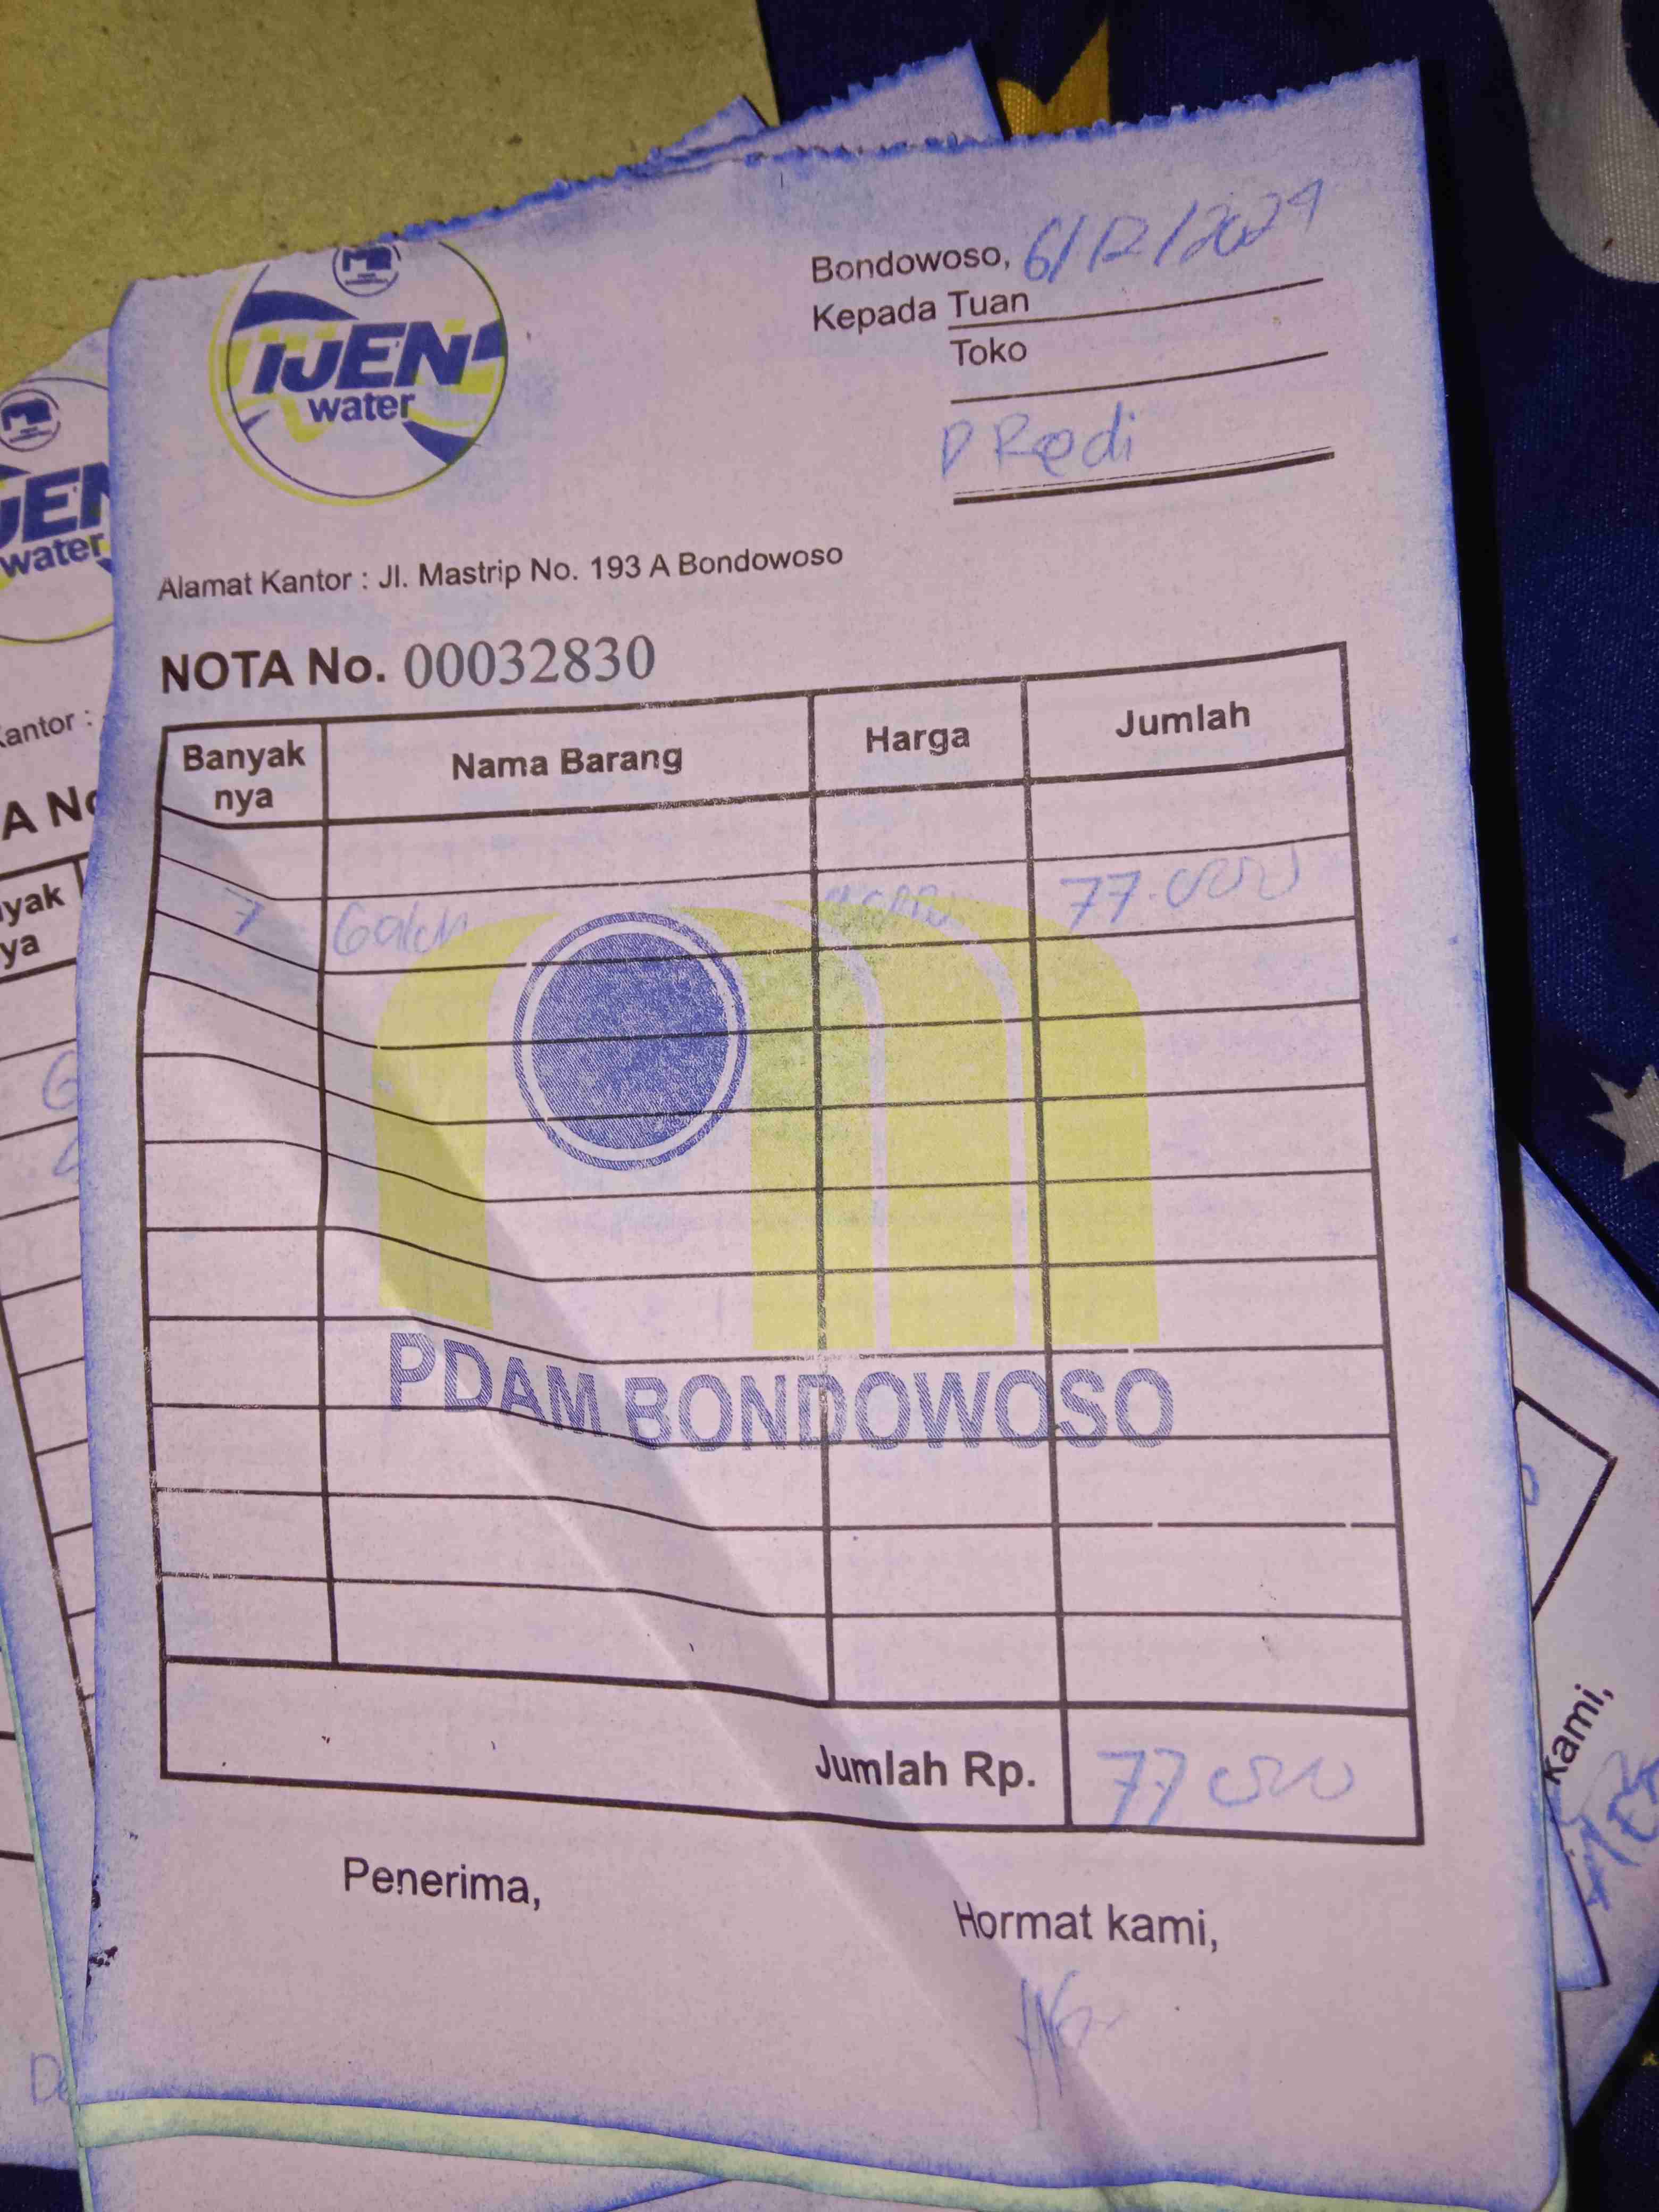 IJEN
water
Bondowoso, 6/12/2024
Kepada Tuan
Toko
P Redi
Alamat Kantor : Jl. Mastrip No. 193 A Bondowoso
NOTA No. 00032830
Banyak nya Nama Barang Harga Jumlah
7 Galon 77.000
PDAM BONDOWOSO
Jumlah Rp. 77000
Penerima,
Hormat kami,
water
Kami,